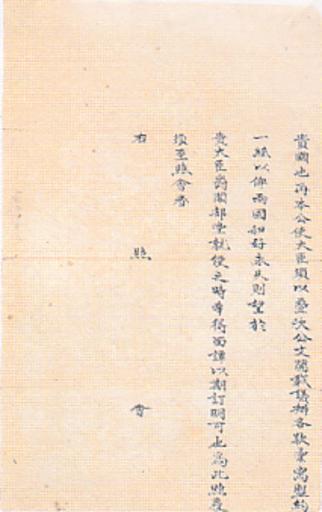 貴國也再本公使大臣須以疊次公文開載議辦各款彙寫慰約
一紙以俾兩國和好永久則望於
貴大臣寫閣部堂就後之時幸得面譚以期訂明可也為此照覆
須至照會者
右照會